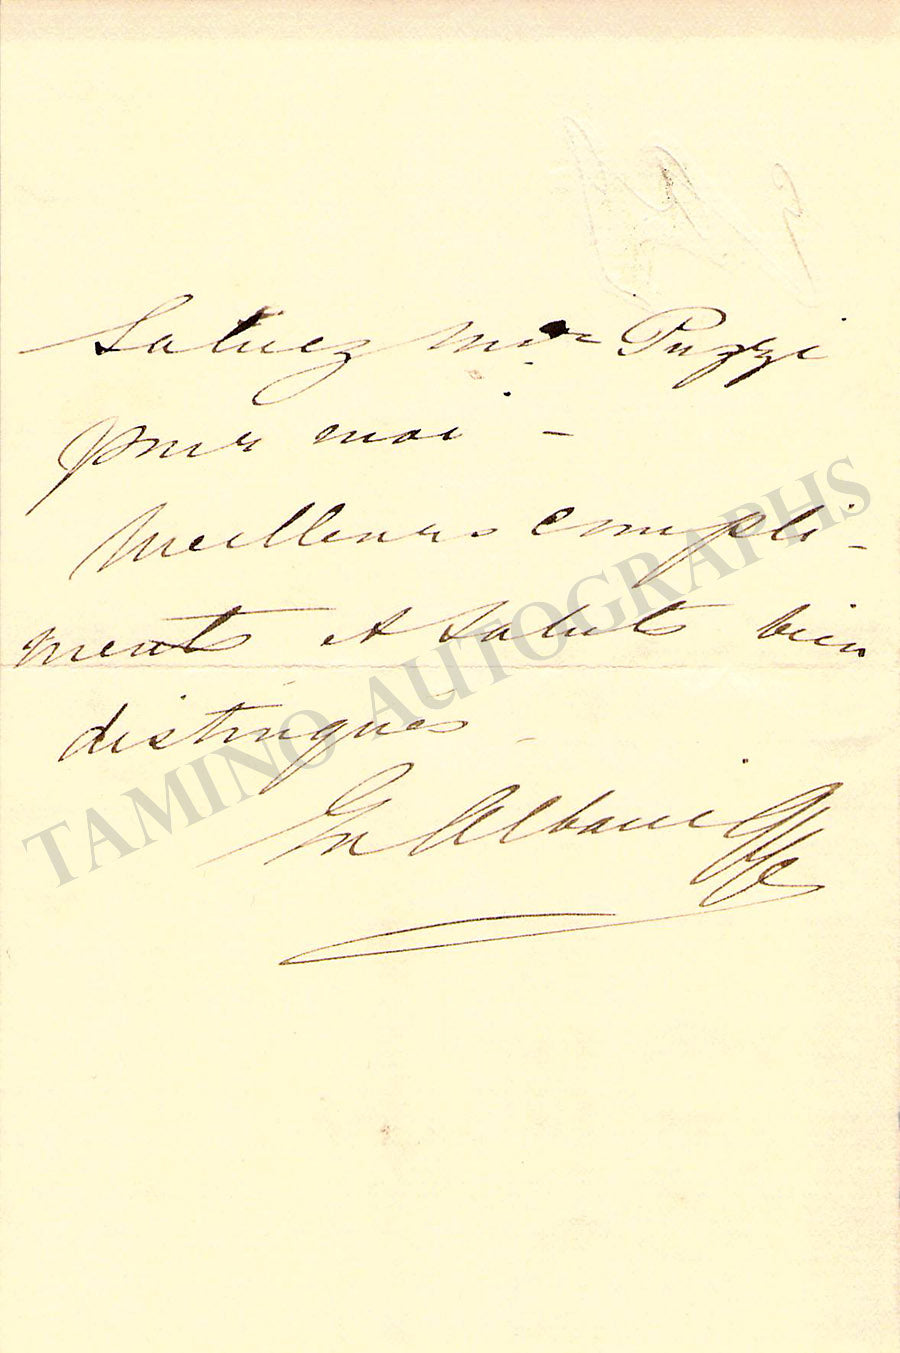 Saluez Mme Puzzi
pour moi -
Meilleurs compli-
ments et saluts bien
distingués
Em Albani Gye
TAMINO AUTOGRAPHS